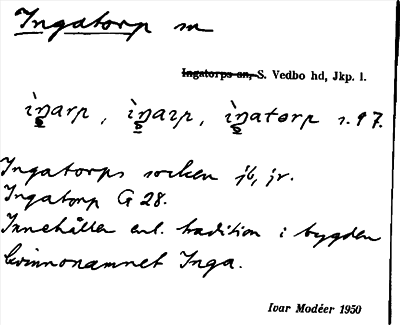 Ingatorp sn
Ingatorps sn, S. Vedbo hd, Jkp. l.
ìŋarp, ìŋaɪp, ìŋatørp s. 97.
Ingatorps socken jb, jr.
Ingatorp G 28.
Innehåller enl. tradition i bygden
kvinnonamnet Inga.
Ivar Modéer 1950